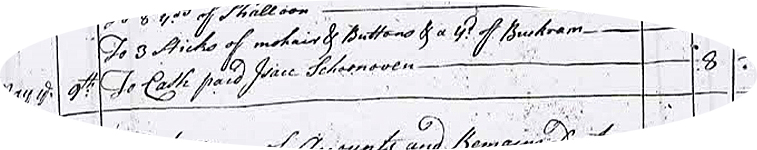 To 8 yds of Shalloon
To 3 Sticks of mohair & Buttons & a yd of Buckram
May ye 9th To Cash paid Isaac Schoonoven 8
of Accounts and Remains